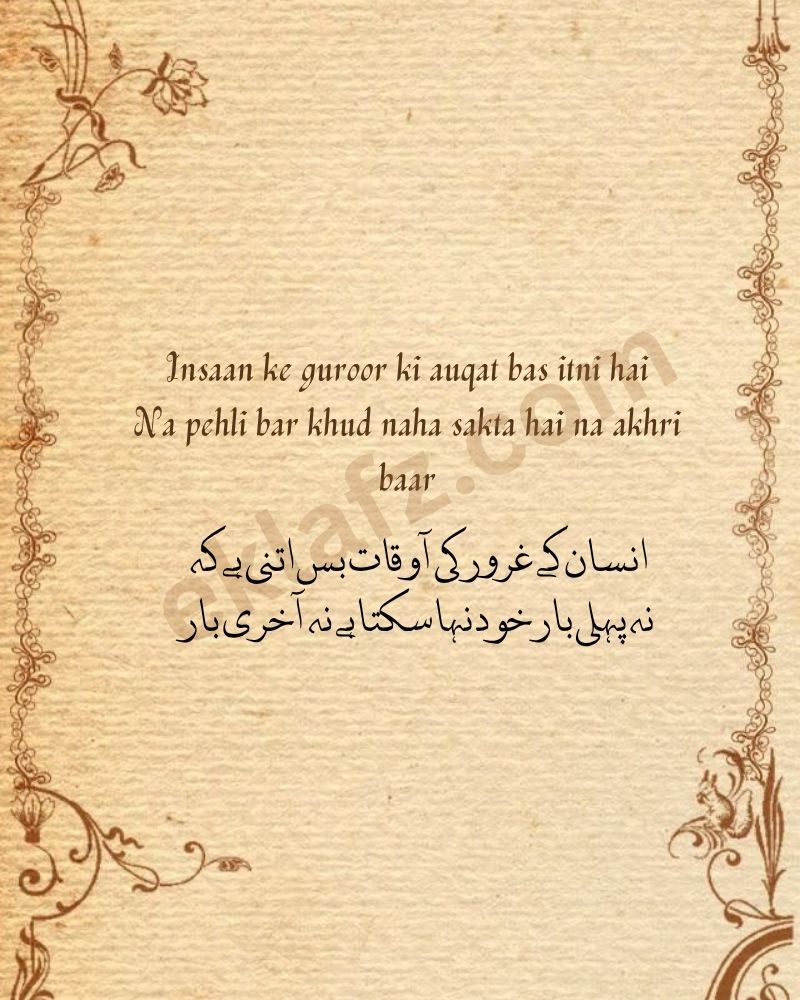 Insaan ke guroor ki auqat bas itni hai
Na pehli bar khud naha sakta hai na akhri
baar
انسان کے غرور کی آوقات بس اتنی ہے کہ
نہ پہلی بار خود نہا سکتا ہے نہ آخری بار
eklafz.com